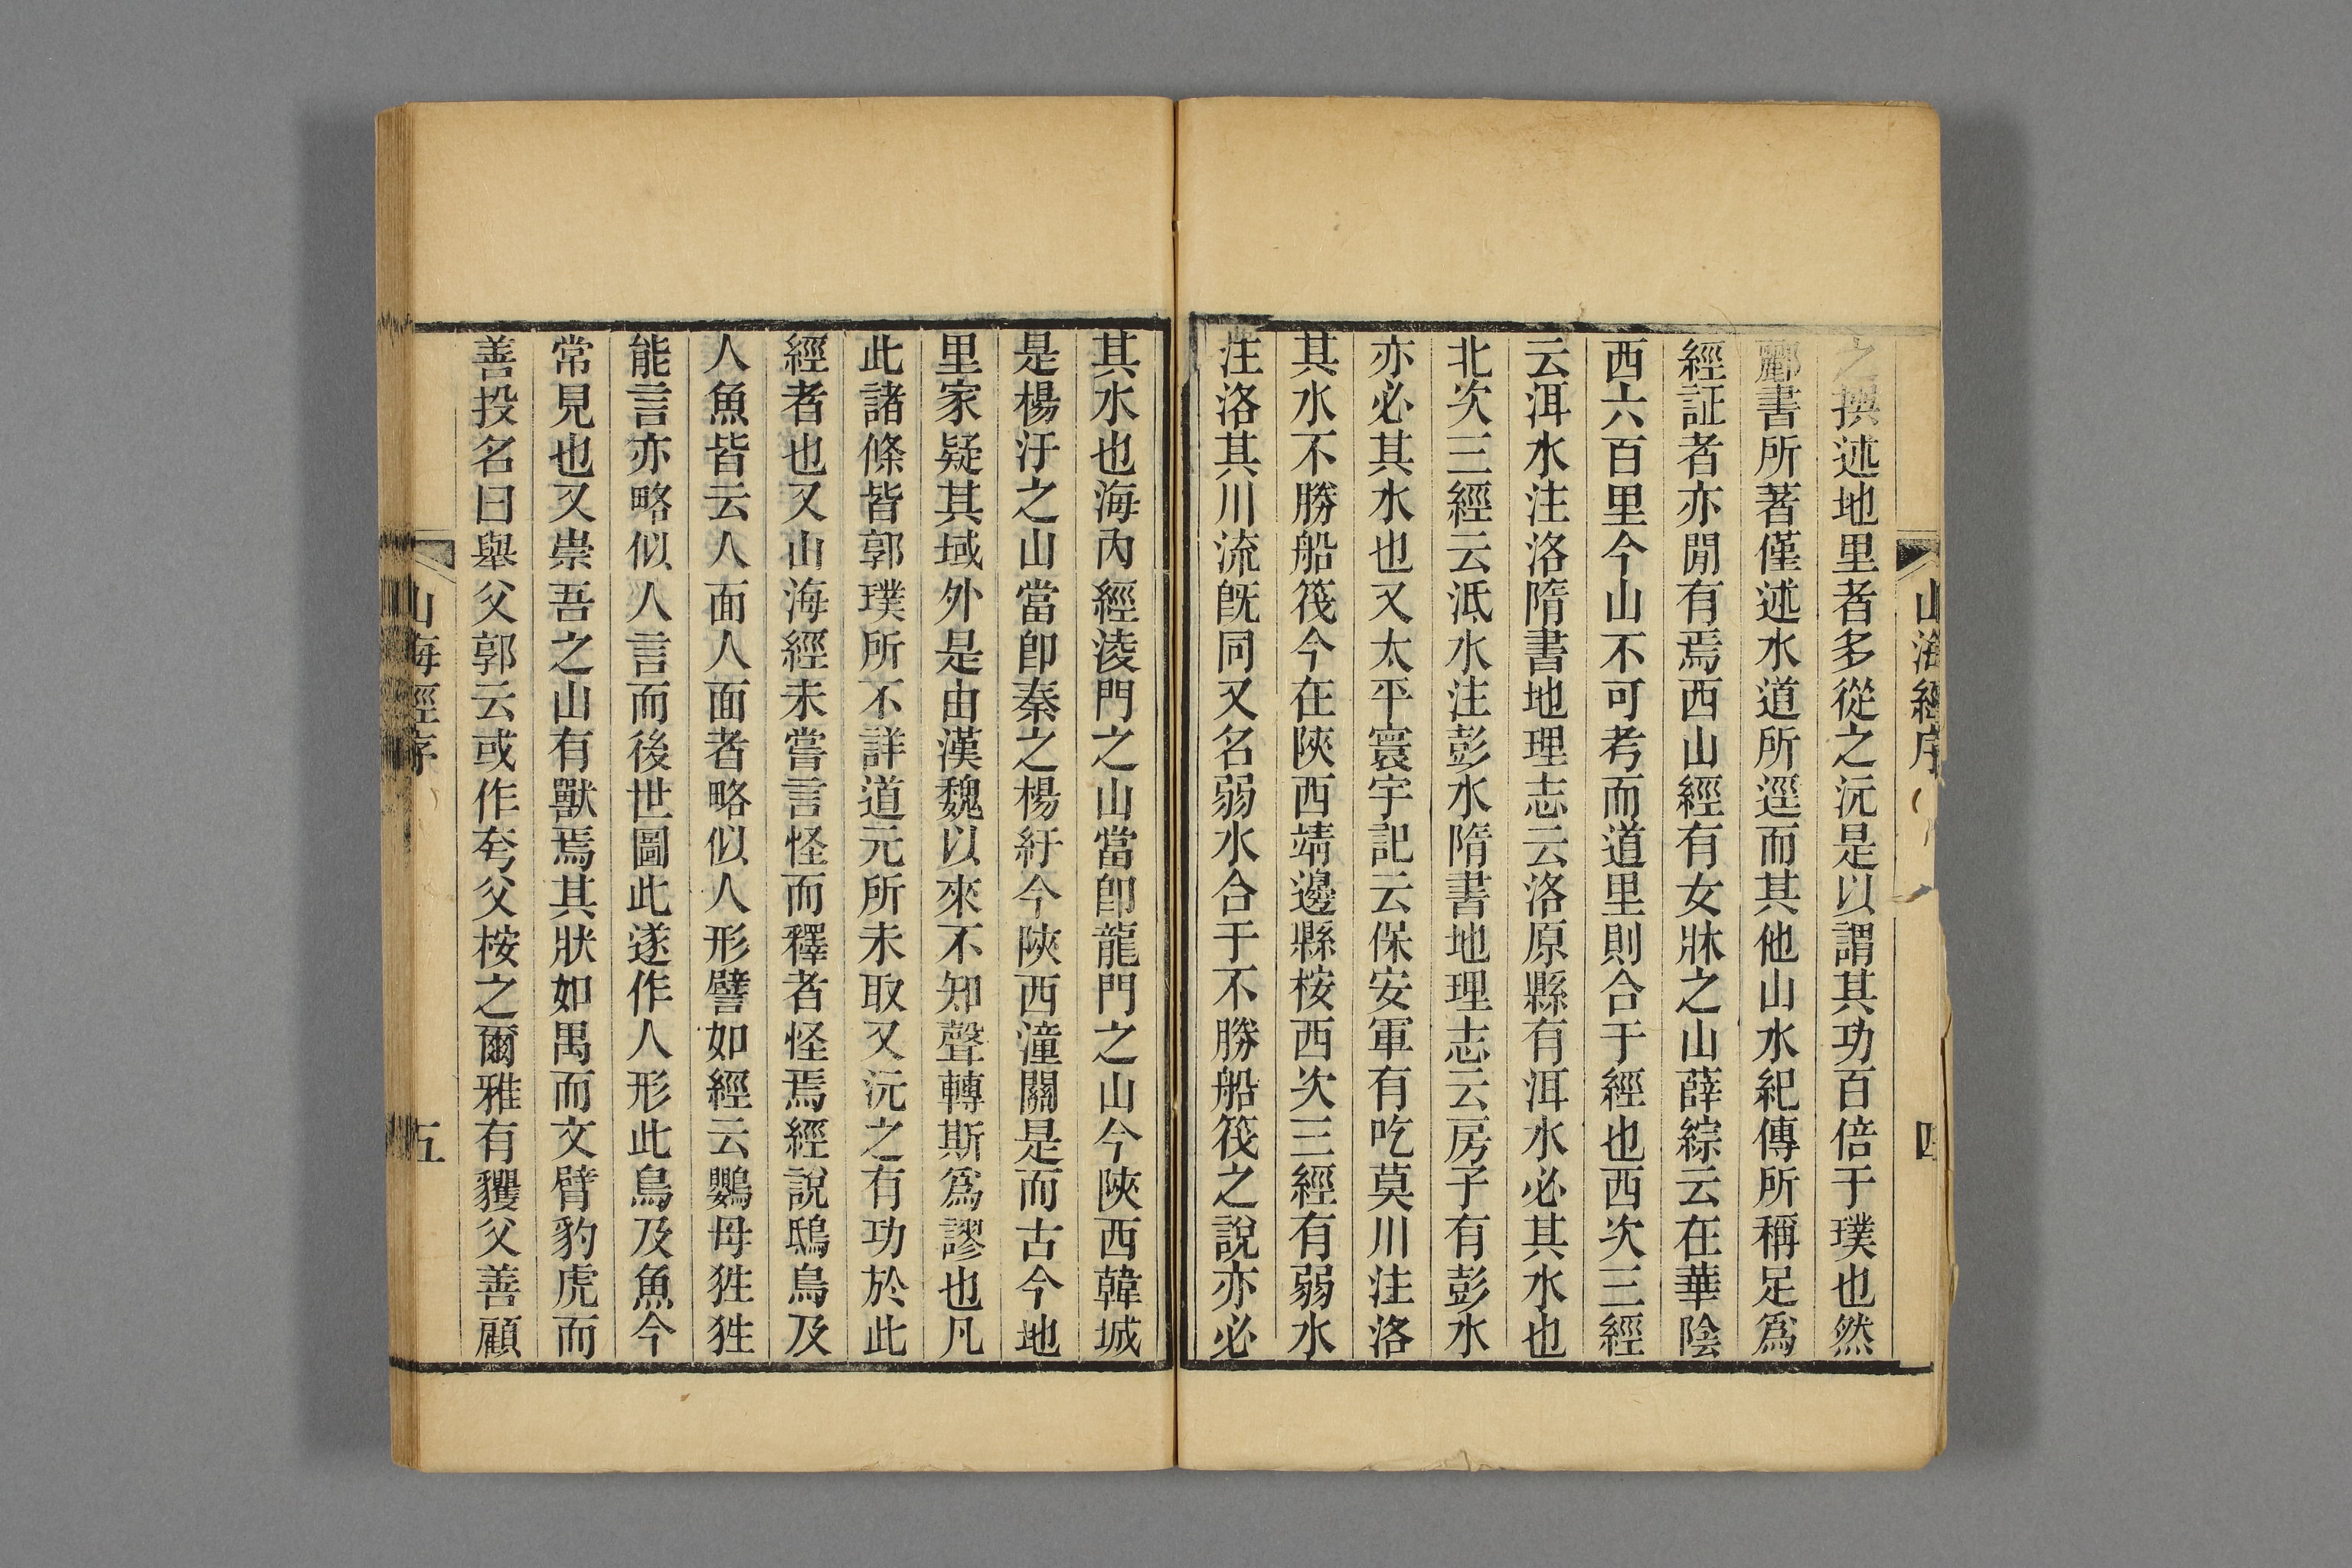 山海經序
四
之撰述地里者多從之沅是以謂其功百倍于璞也然
酈書所著僅述水道所逕而其他山水紀傳所稱足爲
經証者亦閒有焉西山經有女牀之山薛綜云在華陰
西六百里今山不可考而道里則合于經也西次三經
云洱水注洛隋書地理志云洛原縣有洱水必其水也
北次三經云泜水注彭水隋書地理志云房子有彭水
亦必其水也又太平寰宇記云保安軍有吃莫川注洛
其水不勝船筏今在陝西靖邊縣桉西次三經有弱水
注洛其川流旣同又名弱水合于不勝船筏之說亦必
其水也海內經淩門之山當卽龍門之山今陝西韓城
是楊汙之山當卽秦之楊紆今陝西潼關是而古今地
里家疑其域外是由漢魏以來不知聲轉斯爲謬也凡
此諸條皆郭璞所不詳道元所未取又沅之有功於此
經者也又山海經未嘗言怪而釋者怪焉經說鴟鳥及
人魚皆云人面人面者略似人形譬如經云鸚母狌狌
能言亦略似人言而後世圖此遂作人形此鳥及魚今
常見也又崇吾之山有獸焉其狀如禺而文臂豹虎而
善投名曰舉父郭云或作夸父桉之爾雅有玃父善顧
山海經序
五